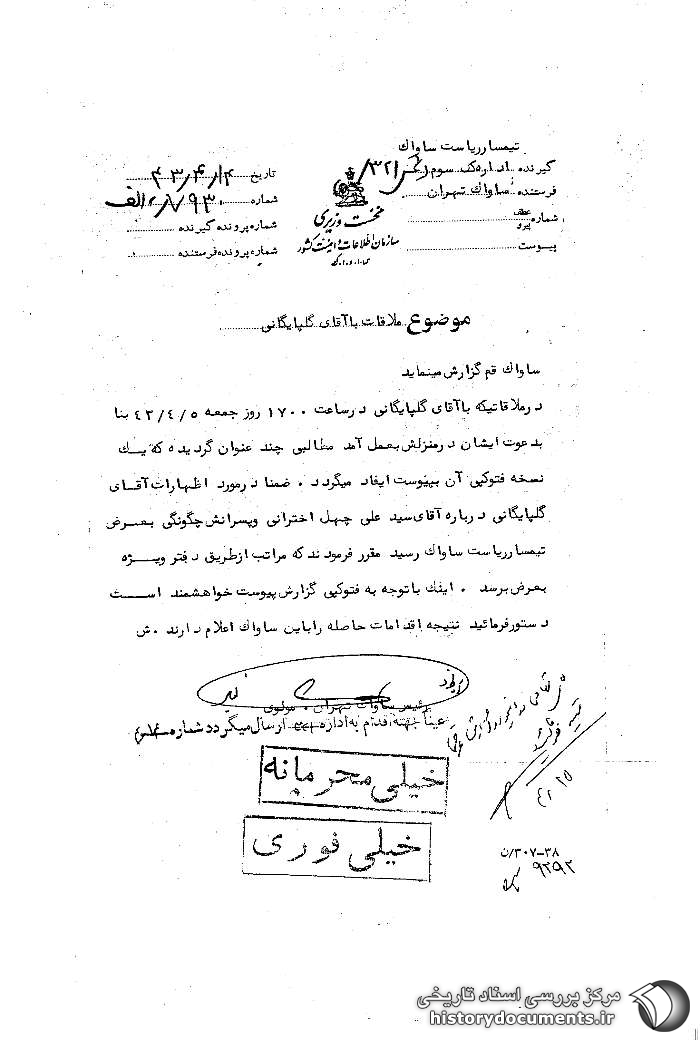 تیمسار ریاست ساواک
گیرنده اداره کل سوم
فرستنده ساواک تهران
شماره
عطف
پیرو
پیوست
نخست وزیری
سازمان اطلاعات و امنیت کشور
س.ا.و.ا.ک
تاریخ ۴۳/۴/۱۴
شماره
شماره پرونده گیرنده
شماره پرونده فرستنده
موضوع ملاقات با آقای گلپایگانی
ساواک قم گزارش مینماید
در ملاقاتیکه با آقای گلپایگانی در ساعت ۱۷۰۰ روز جمعه ۴۳/۴/۵ بنا
بدعوت ایشان در منزلش بعمل آمد مطالبی چند عنوان گردیده که یک
نسخه فتوکپی آن بپیوست ایفاد میگردد . ضمنا در مورد اظهارات آقای
گلپایگانی درباره آقای سید علی چهل اخترانی و پسرانش چگونگی بعرض
تیمسار ریاست ساواک رسید مقرر فرمودند که مراتب از طریق دفتر ویژه
بعرض برسد . اینک با توجه به فتوکپی گزارش پیوست خواهشمند است
دستور فرمائید نتیجه اقدامات حاصله را باین ساواک اعلام دارند . ش
رئیس ساواک تهران . مولوی
عیناً جهته اقدام به اداره ارسال میگردد شماره
خیلی محرمانه
خیلی فوری
۳۰۷-۳۸/ن
۹۲۹۲
مرکز بررسی اسناد تاریخی
historydocuments.ir